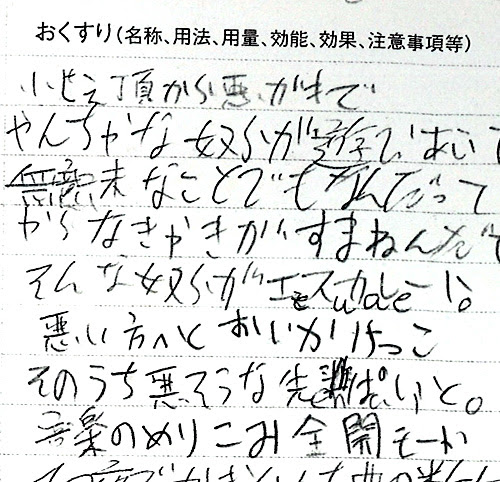 おくすり(名称、用法、用量、効能、効果、注意事項等)
小せえ頂から悪ガキで
やんちゃな奴らが
無意味なことでもなんだって
からなきゃきがすまねんだ
そんな奴らがエスカレート。
悪い方へと おいかけっこ
そのうち悪そうな先輩ぱいと。
音楽のめりこみ全開モード